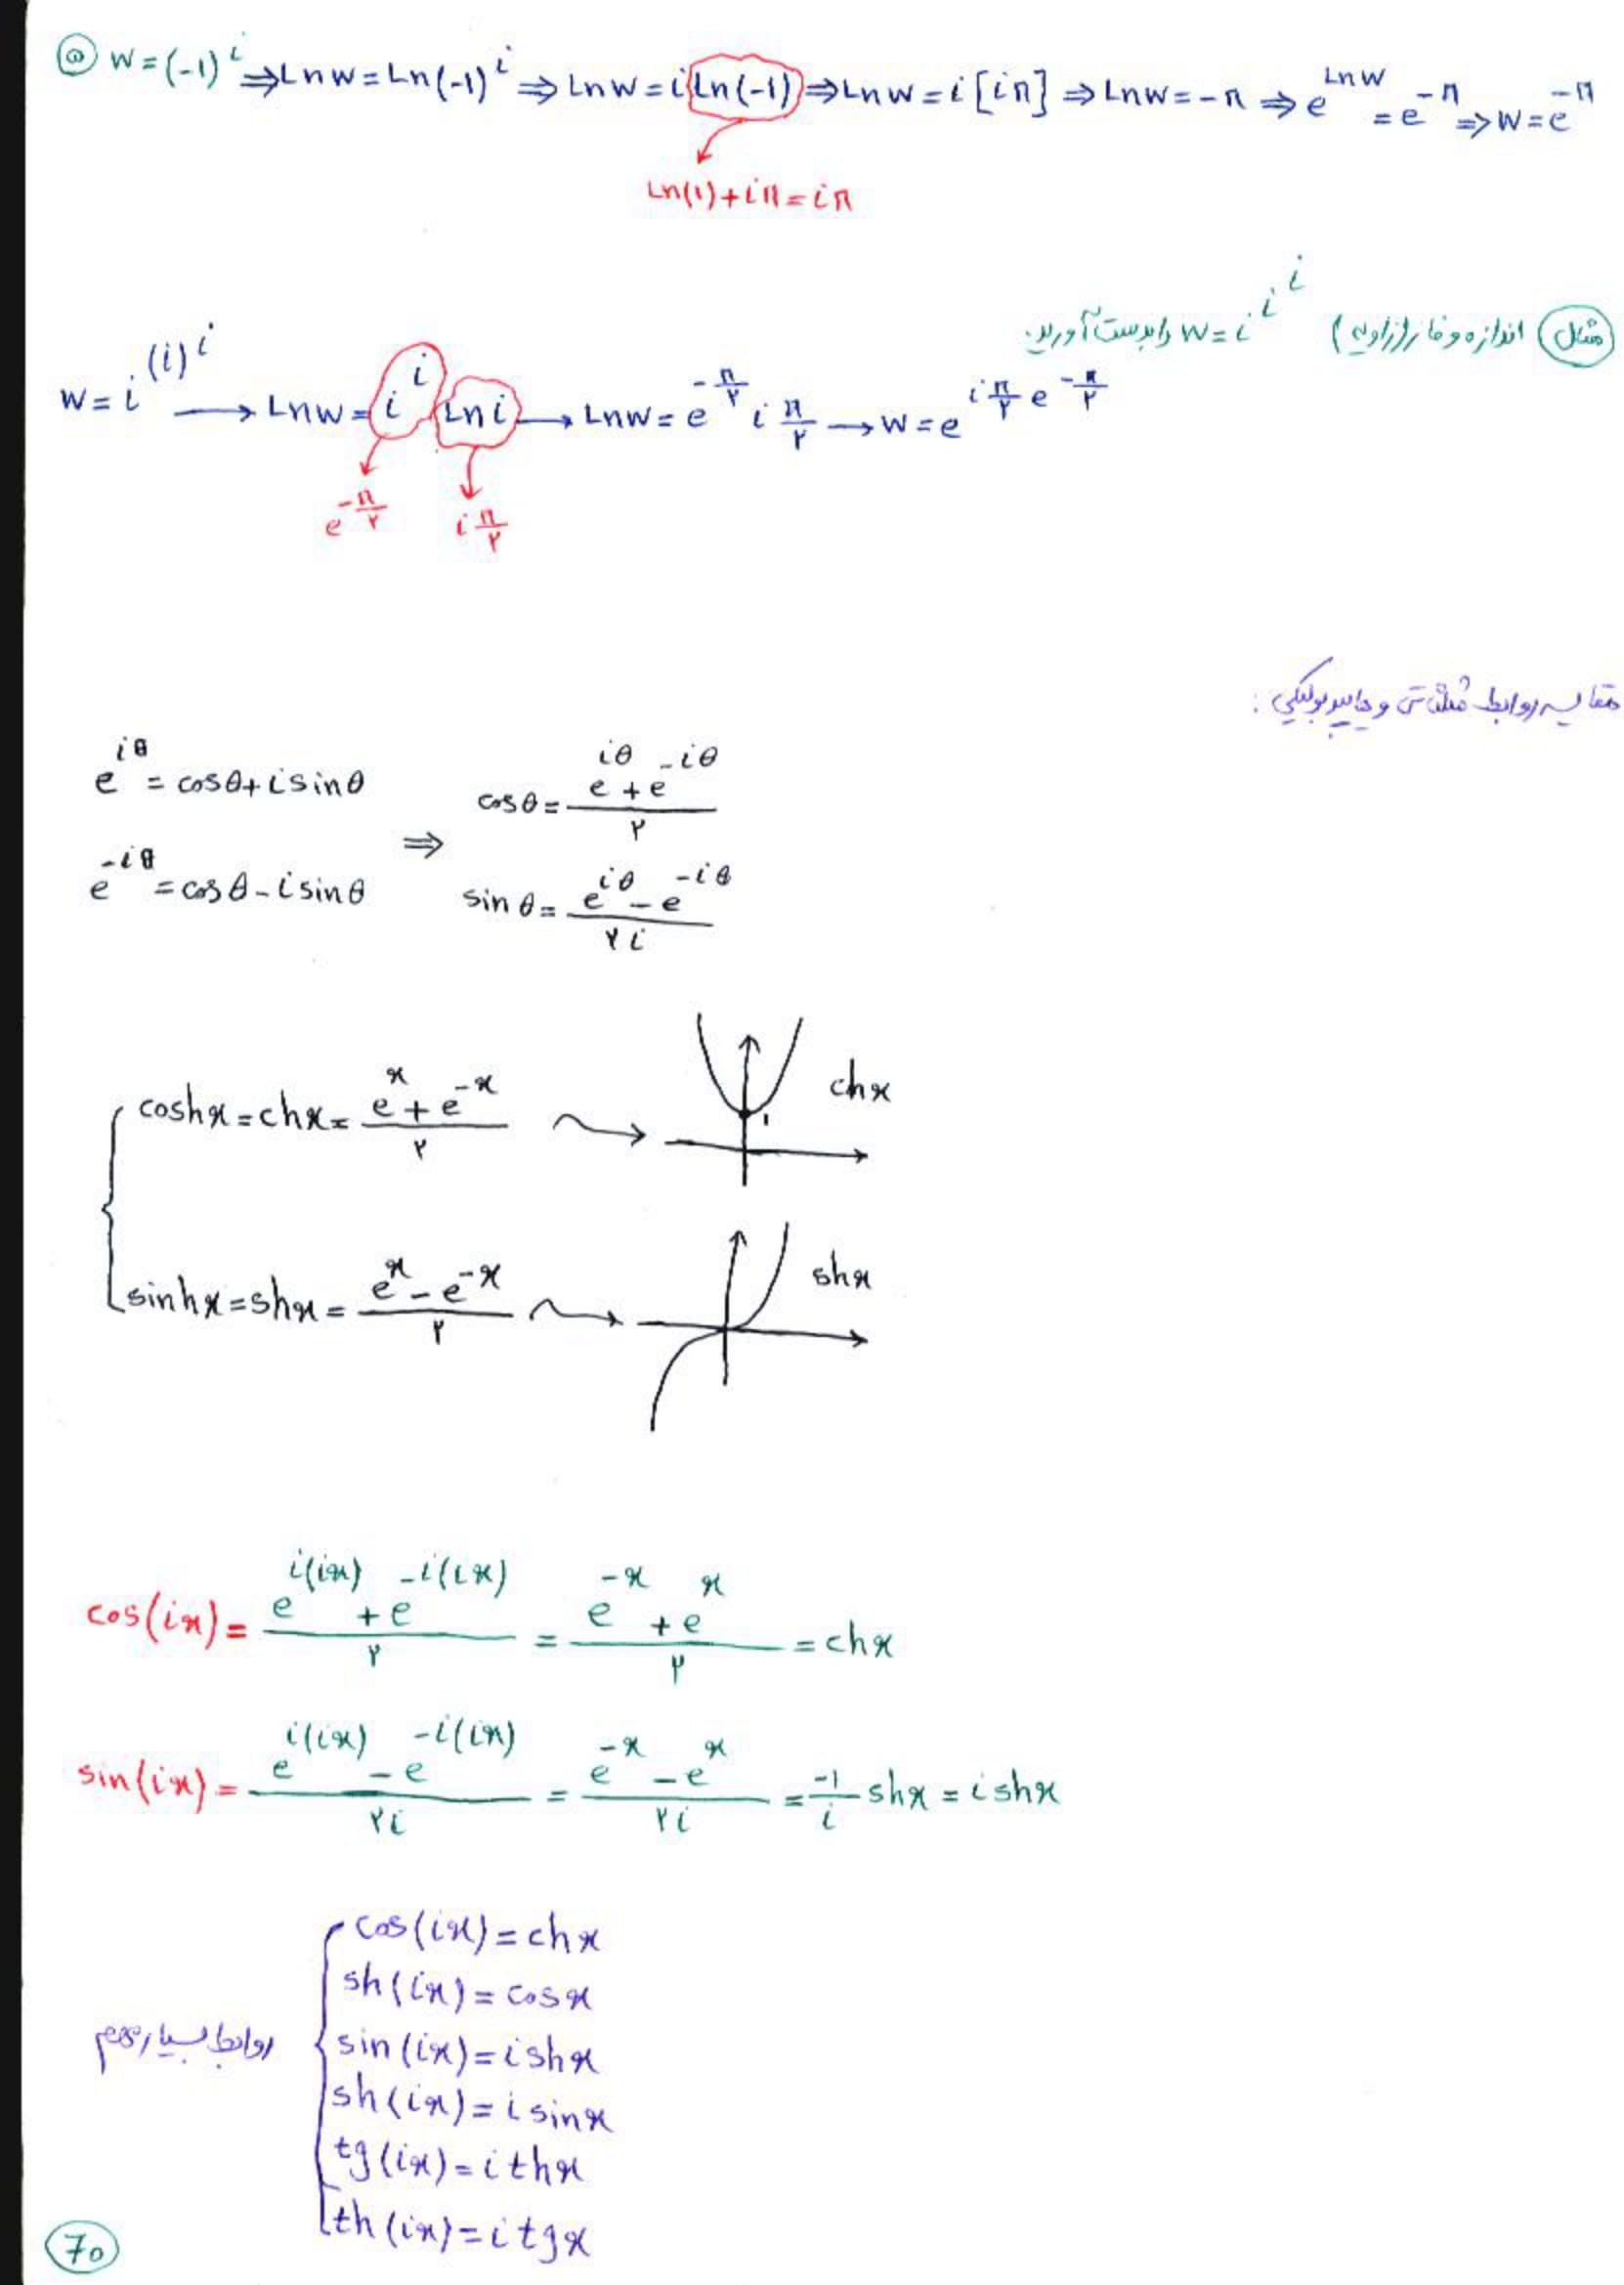 ⑤ w=(-1)^i ⇒ Lnw=Ln(-1)^i ⇒ Lnw=i Ln(-1) ⇒ Lnw=i[iπ] ⇒ Lnw=-π ⇒ e^{Lnw}=e^{-π} ⇒ w=e^{-π}
Ln(1)+iπ=iπ
مثال اندازه و فاز (زاویه) w=i^{i^i} را بدست آورید.
w=i^{(i)^i} → Lnw=i^i Ln i → Lnw=e^{-π/۲} i π/۲ → w=e^{i π/۲ e^{-π/۲}}
e^{-π/۲} i π/۲
مقایسه روابط مثلثاتی و هایپربولیکی:
e^{iθ}=cosθ+isinθ
e^{-iθ}=cosθ-isinθ
⇒
cosθ=(e^{iθ}+e^{-iθ})/۲
sinθ=(e^{iθ}-e^{-iθ})/۲i
coshx=chx=(e^x+e^{-x})/۲
chx
1
sinhx=shx=(e^x-e^{-x})/۲
shx
cos(ix)=(e^{i(ix)}+e^{-i(ix)})/۲=(e^{-x}+e^x)/۲=chx
sin(ix)=(e^{i(ix)}-e^{-i(ix)})/۲i=(e^{-x}-e^x)/۲i=-1/i shx=ishx
روابط بسیار مهم
cos(ix)=chx
sh(ix)=cosx
sin(ix)=ishx
sh(ix)=isinx
tg(ix)=ithx
th(ix)=itgx
70